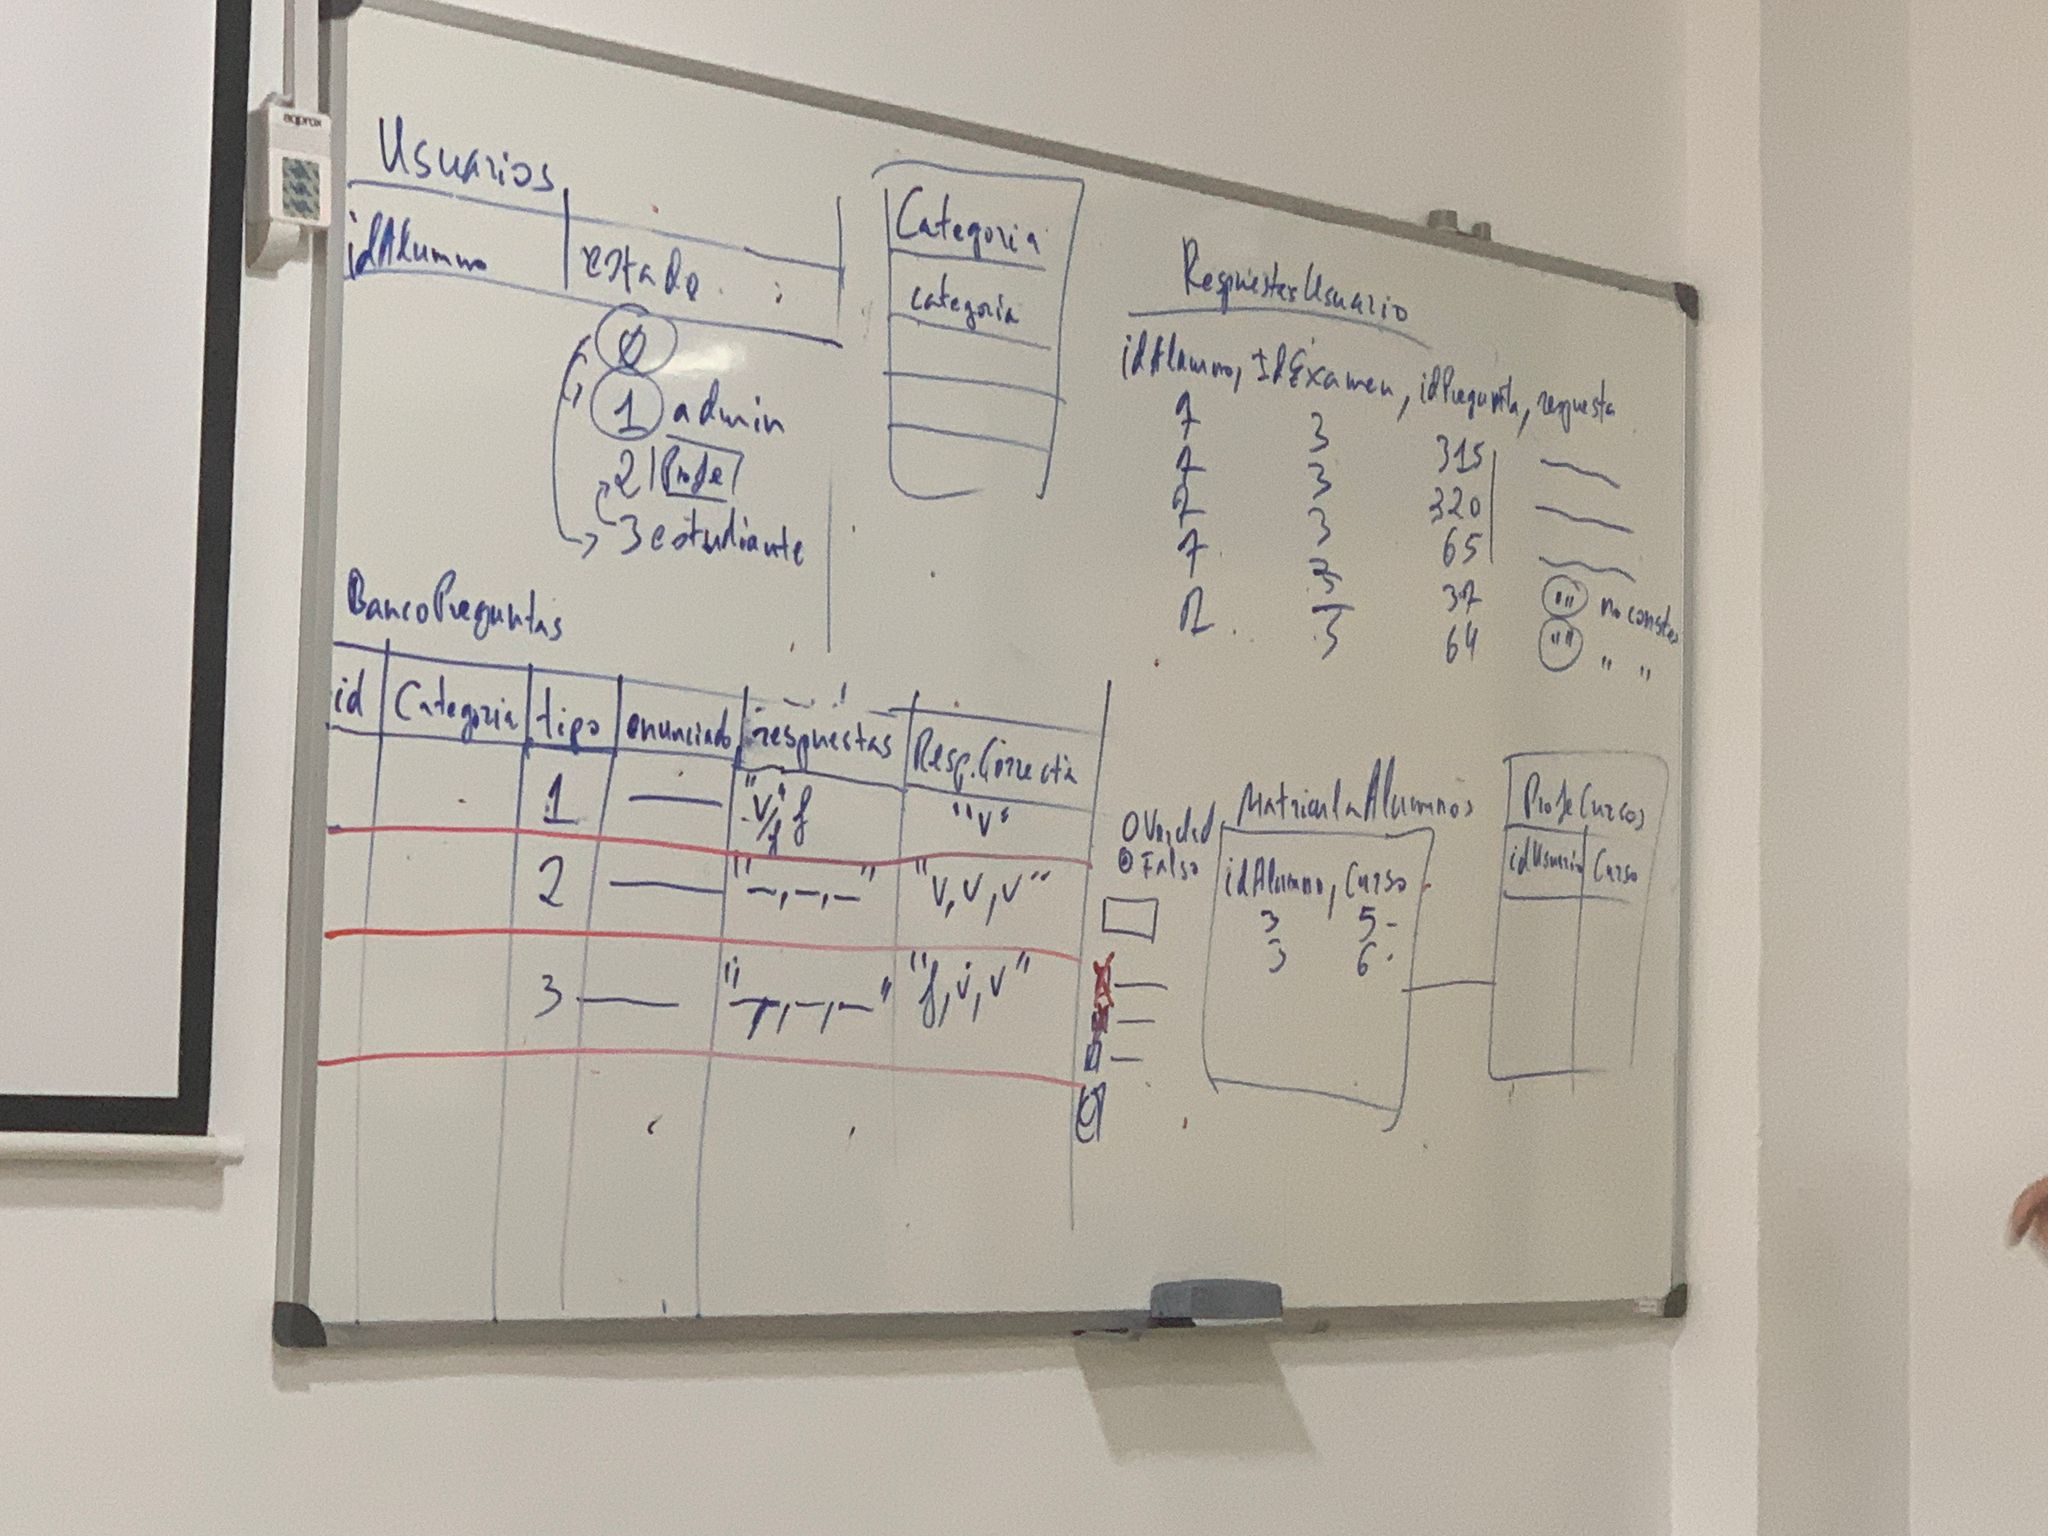 aqprox
Usuarios
idAlumno estado
0
1 admin
2 Profe
3 estudiante
Categoria
categoria
RespuestasUsuario
idAlumno, IdExamen, idPregunta, respuesta
7 3 315
7 3 320
7 3 65
7 3 37 "" no contesta
7 3 64 "" " "
BancoPreguntas
id Categoria tipo enunciado respuestas Resp.Correcta
1 "v/f" f "v"
2 "_,_,_" "v,v,v"
3 "_,_,_" "f,v,v"
O Verdad
O Falso
MatriculaAlumnos
idAlumno, Curso
3 5-
3 6-
ProfeCursos
idUsuario Curso